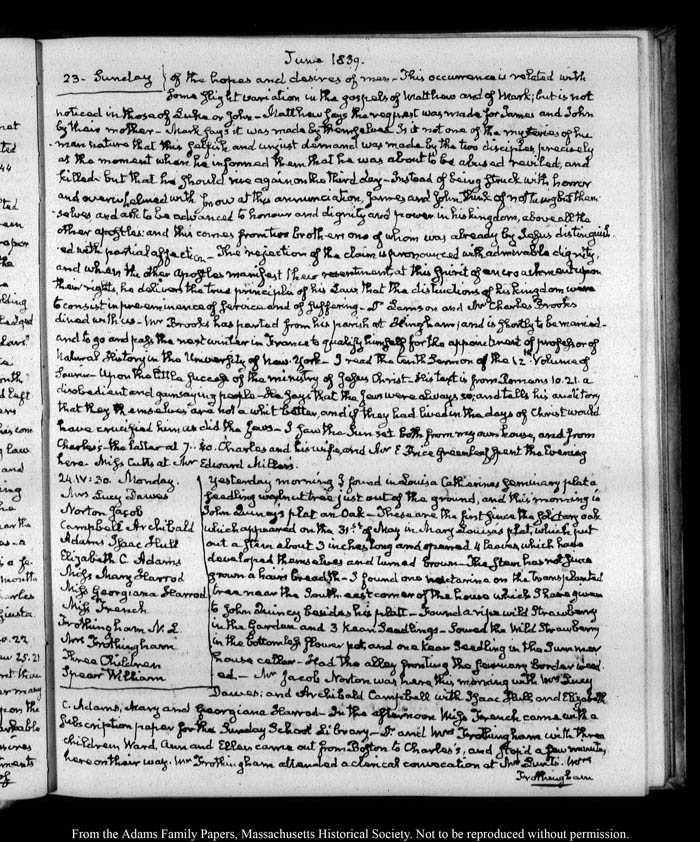 June 1839.
23. Sunday } of the hopes and desires of men – This occurrence is related with
some slight variation in the gospels of Matthew and of Mark; but is not
noticed in those of Luke or John – Matthew says the request was made for James and John
by their mother – Mark says it was made by themselves. Is it not one of the mysteries of hu
man nature that this selfish and unjust demand was made by the two disciples precisely
at the moment when he informed them that he was about to be abused reviled, and
killed but that he should rise again on the third day – Instead of being struck with horror
and overwhelmed with at this annunciation, James and John think of nought but them
selves and ask to be advanced to honour and dignity and power in his kingdom, above all the
other apostles: and this comes from two brothers one of whom was already by Jesus distinguish
ed with partial affection – The rejection of the claim is pronounced with admirable dignity,
and when the other Apostles manifest their resentment at this spirit of encroachment upon
their rights, he delivers the true principle of his Law that the distinctions of his kingdom were
to consist in pre-eminence of service and of suffering – Dr Lamson and Mr Charles Brooks
dined with us – Mr Brooks has parted from his parish at Hingham; and is shortly to be married –
and to go and pass the next winter in France to qualify himself for the appointment of professor of
Natural History in the University of New-York – I read the tenth Sermon of the 12th Volume of
Saurin – Upon the little success of the ministry of Jesus Christ – His text is from Romans 10.21. a
disobedient and gainsaying people – He says that the Jews were always so, and tells his auditory
that they themselves are not a whit better, and if they had lived in the days of Christ would
have crucified him as did the Jews – I saw the Sun set both from my own house, and from
Charles's – the latter at 7.. 40. Charles and his wife, and Mr E Price Greenleaf spent the Evening
here. Miss Cutts at Mr Edward Miller's.
24. IV: 30. Monday.
Mrs Lucy Dawes
Norton Jacob
Campbell Archibald
Adams Isaac Hull
Elizabeth C. Adams
Miss Mary Harrod
Miss Georgiana Harrod
Miss French
Frothingham N. L.
Mrs Frothingham
Three Children
Spear William
Yesterday morning I found in Louisa Catherine's seminary plat a
seedling walnut tree just out of the ground, and this morning in
John Quincy's plat an Oak – These are the first since the solitary oak
which appeared on the 31st of May in Mary Louisa's plat, which put
out a stem about 3 inches long and opened 4 leaves which have
developed themselves and turned brown – The stem has not since
grown a hair's breadth – I found one nectarine on the transplanted
tree near the South east corner of the house which I have given
to John Quincy besides his platt – Found a ripe wild Strawberry
in the Garden and 3 Kean Seedlings – Sowed the Wild Strawberry
in the bottomless flower pot, and one Kean Seedling in the Summer
house cellar – Had the alley fronting the border weed
ed – Mr Jacob Norton was here this morning with Mrs Lucy
Dawes; and Archibald Campbell with Isaac Hull and Elizabeth
C. Adams, Mary and Georgiana Harrod – In the afternoon Miss French came with a
Subscription paper for the Sunday School Library – Dr and Mrs Frothingham with three
children Ward, Ann and Ellen came out from Boston to Charles's, and stop'd a few minutes
here on their way. Mr Frothingham attended a clerical convocation at Mr Lunt's. Mrs
Frothingham
From the Adams Family Papers, Massachusetts Historical Society. Not to be reproduced without permission.